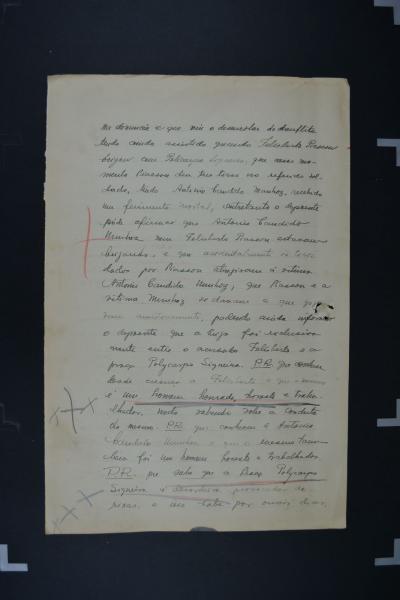 na denuncia e que viu o desenrolar do conflito
tendo ainda assistido quando Felisberto Rasson
brigou com Polycarpo Siqueira, que nesse mo-
mento Rasson deu tres tiros no referido sol-
dado, tendo Antonio Candido Munhoz, recebido
um ferimento mortal, entretanto o depoente
póde afirmar que Antonio Candido
Munhoz nem Felisberto Rasson estavam
brigando, e que accidentalmente os tiros
dados por Rasson attingiram a victima
Antonio Candido Munhoz; que Rasson e a
victima Munhoz se davam e que
podendo ainda
o depoente que a briga foi exclusiva
mente entre o accusado Felisberto e a
praça Polycarpo Siqueira. P.R. que conhece
desde creança a Felisberto e que o mesmo
é um homem honrado, honesto e traba-
lhador, nada sabendo sobre a conducta
do mesmo. P.R. que conhecia a Antonio
Candido Munhoz e que o mesmo tam-
bem foi um homem honesto e trabalhador
P.R. que sabe que a praça Polycarpo
Siqueira é desordeiro provocador de
rixas, e